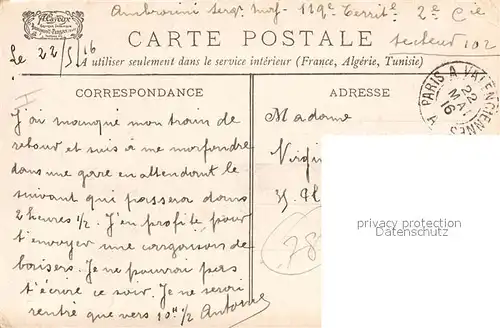 Ambrosini serg. inf. 119e Territ.le 2e Cie
secteur 102
CARTE POSTALE
Le 22/5/16
A utiliser seulement dans le service intérieur (France, Algérie, Tunisie)
CORRESPONDANCE
ADRESSE
PARIS A VALENCIENNES
22
MAI
16
J'ai manqué mon train de
retour et suis à me morfondre
dans une gare en attendant le
suivant qui passera dans
2 heures 1/2. J'en profite pour
t'envoyer une cargaison de
baisers. Je ne pourrai pas
t'écrire ce soir. Je ne serai
rentré que vers 10H 1/2 Antoine
Madame
35
78
privacy protection
DarkerOne.com